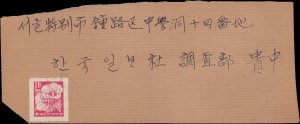 서울特別市 鍾路区 中學洞 十四番地
한국일보社 調査部 貴中
20